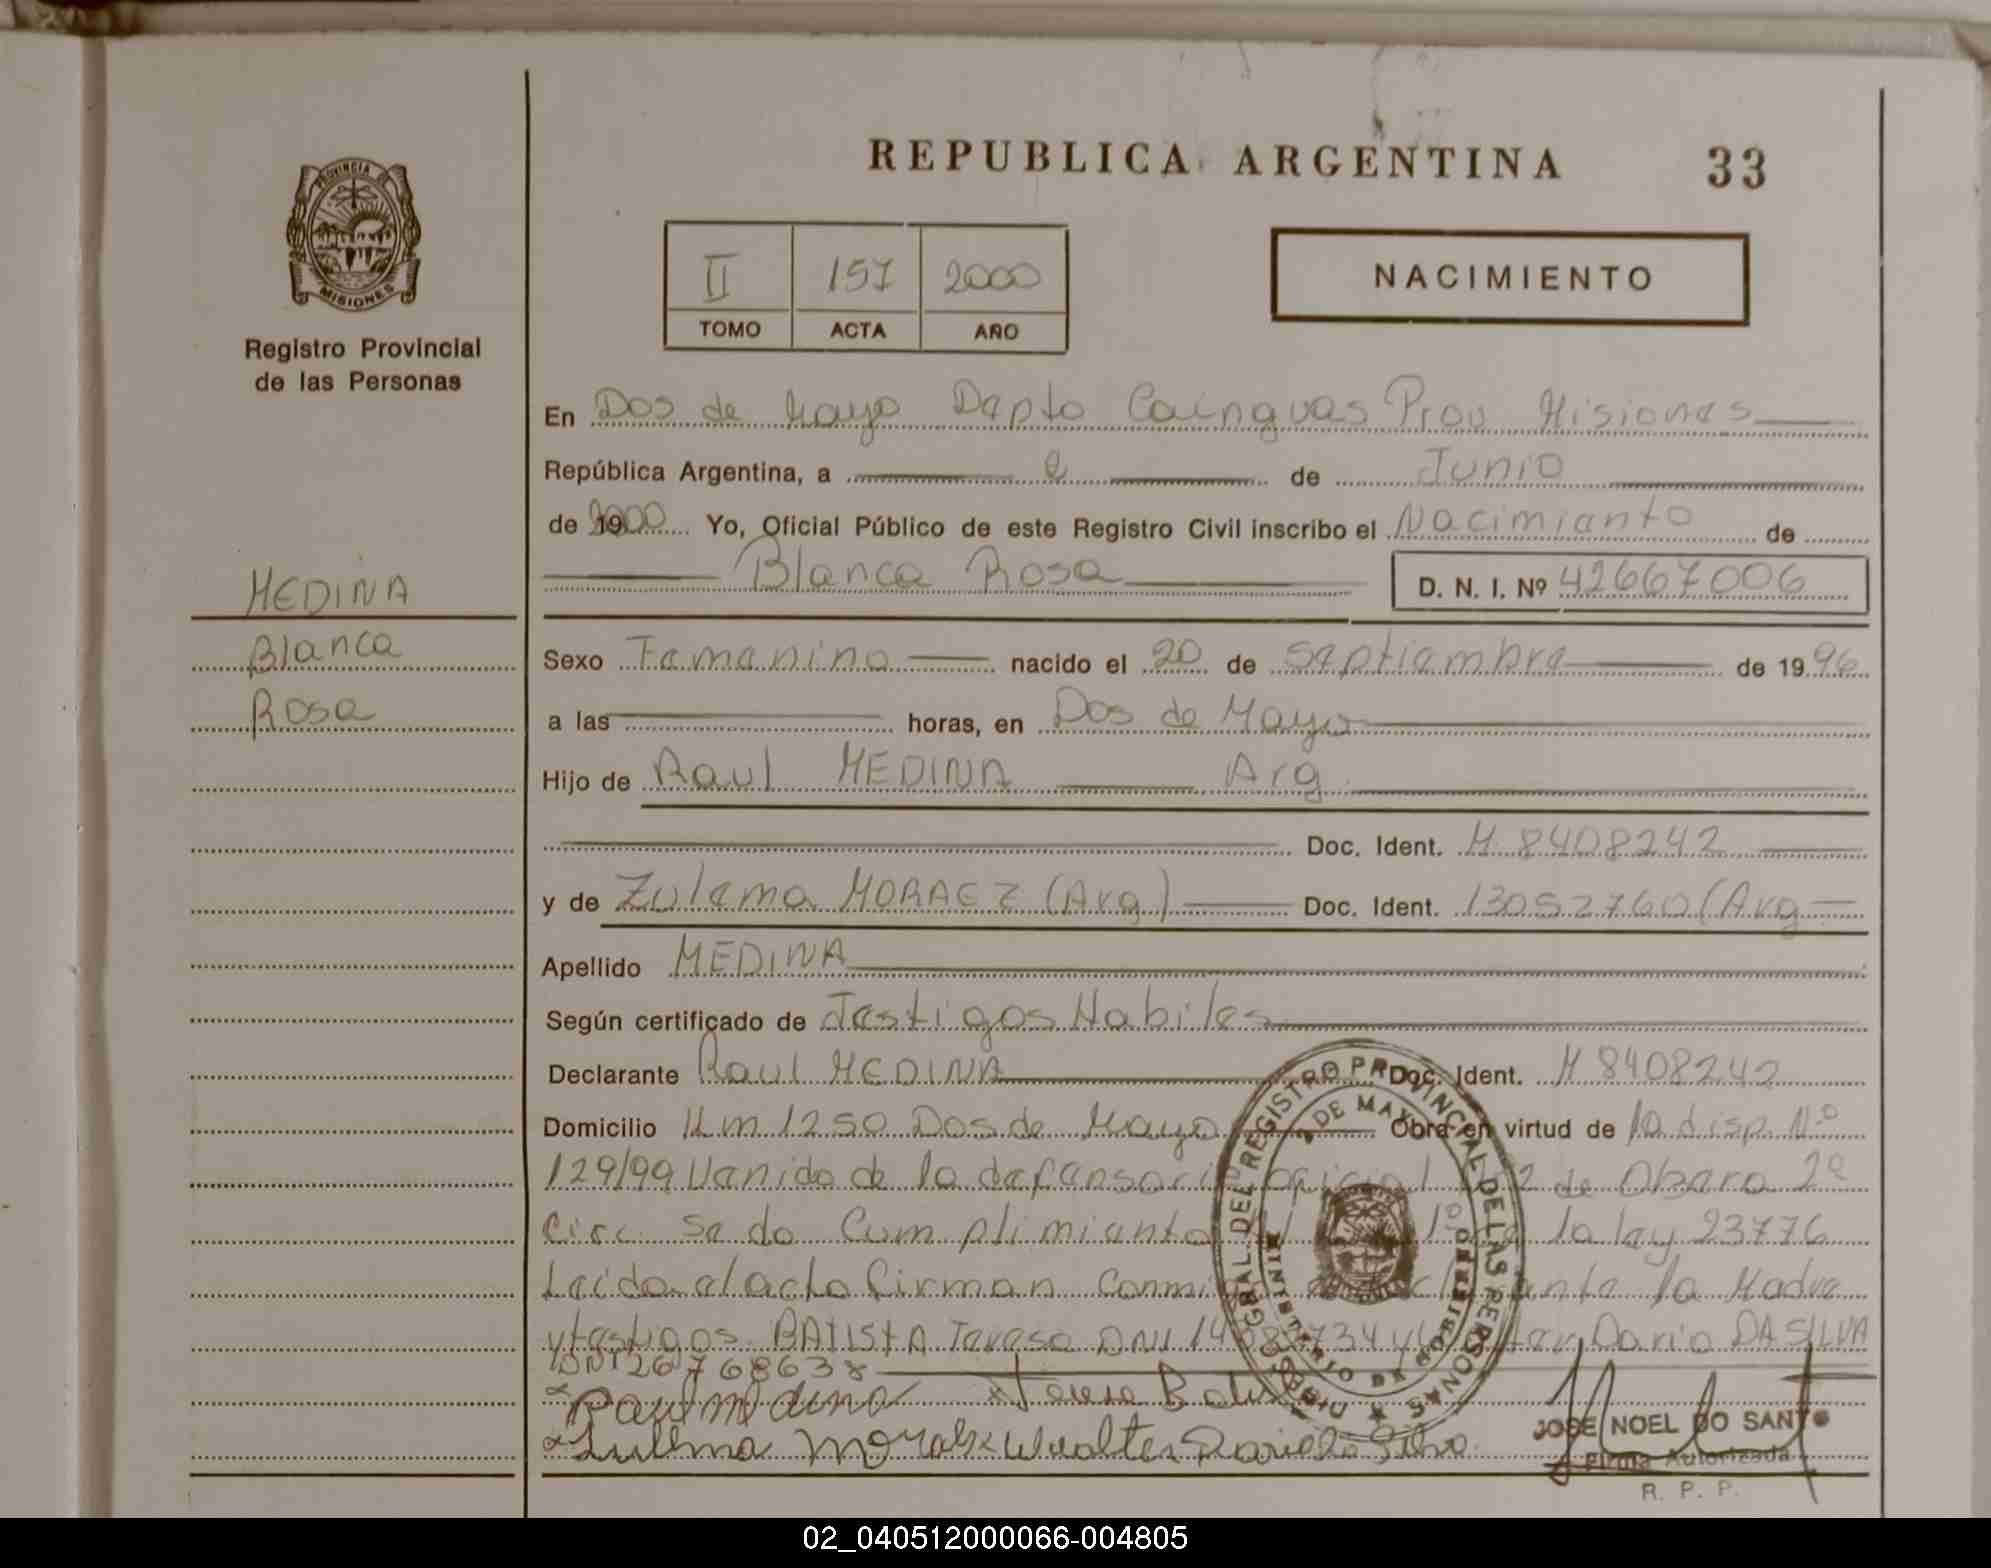 REPUBLICA ARGENTINA 33
PROVINCIA DE
MISIONES
Registro Provincial
de las Personas
II 157 2000
TOMO ACTA AÑO
NACIMIENTO
En Dos de Mayo Depto Cainguas Prov Misiones
República Argentina, a 2 de Junio
de 2000 Yo, Oficial Público de este Registro Civil inscribo el Nacimiento de
Blanca Rosa D. N. I. Nº 42667006
MEDINA
Blanca
Rosa
Sexo Femenino nacido el 20 de Septiembre de 1996
a las horas, en Dos de Mayo
Hijo de Raul MEDINA Arg.
Doc. Ident. M 8408242
y de Zulema MORAEZ (Arg) Doc. Ident. 13052760 (Arg
Apellido MEDINA
Según certificado de Testigos Habiles
Declarante Raul MEDINA Doc. Ident. M 8408242
Domicilio Km 1250 Dos de Mayo Obra en virtud de la disp. Nº
129/99 Venido de la defensoria oficial Nº2 de Obera 2ª
Circ. Se da Cumplimiento 1º la ley 23776
Leido el acto firman Conmigo la Madre
y testigos BATISTA Teresa DNI 734 y Dario DA SILVA
DNI 26768638
Raul Medina Teresa Batista
Sullma Moraez Walter Dario da Silva
DIREC. GRAL. DEL REGISTRO PROVINCIAL DE LAS PERSONAS
2 DE MAYO
MINISTERIO DE GOBIERNO
JOSE NOEL DO SANTOS
Firma Autorizada
R. P. P.
02_040512000066-004805